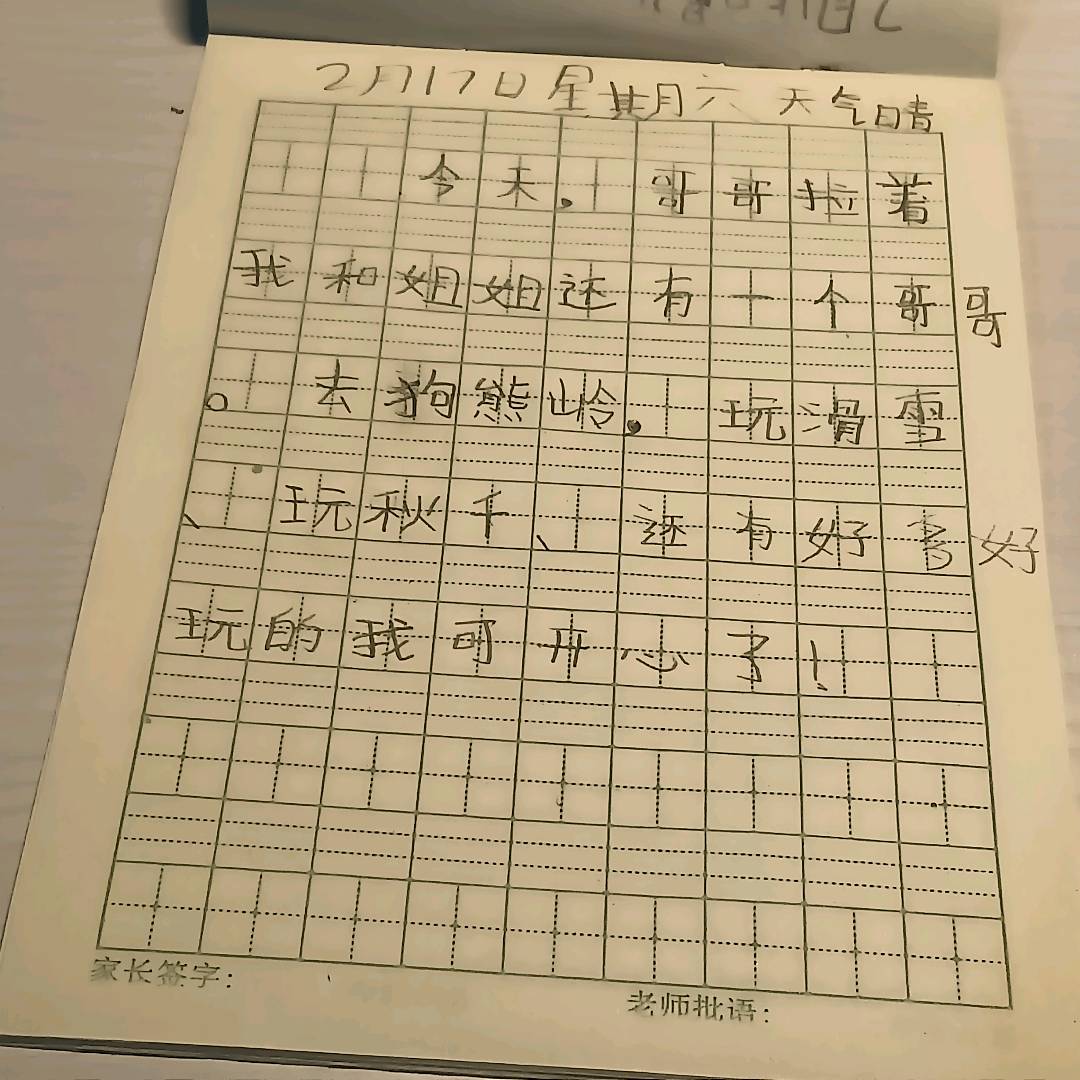 2月17日星期六 天气晴
今天,哥哥拉着
我和姐姐还有一个哥哥
。去狗熊岭,玩滑雪
、玩秋千、还有好多好
玩的我可开心了!
家长签字:
老师批语: